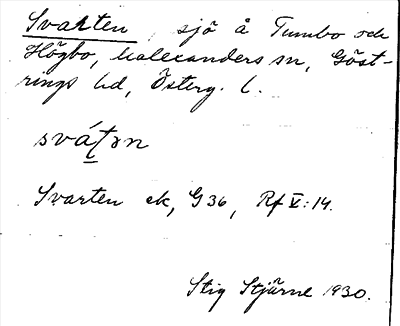 Svarten, sjö å Tumbo och
Högbo, Malexanders sn, Göst-
rings hd, Österg. l.
svát̠ɜn
Svarten ek, G 36, Rf V:14.
Stig Stjärne 1930.